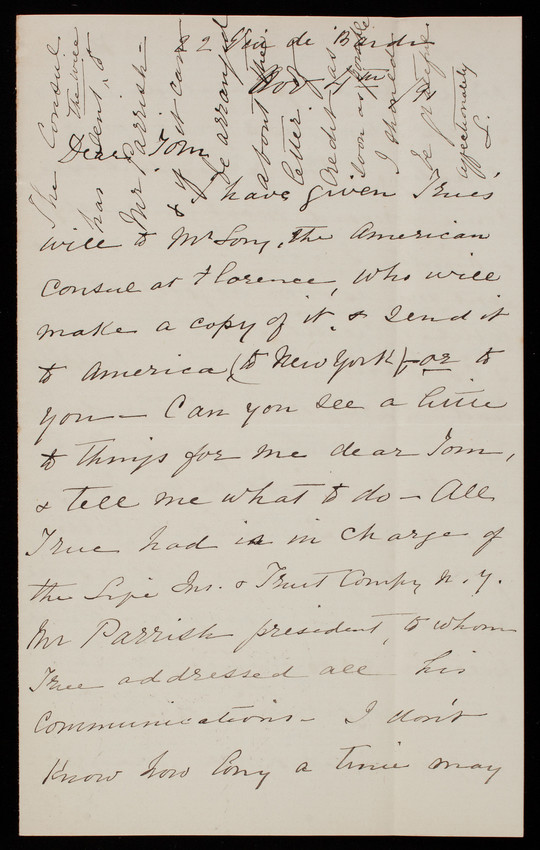 22 Via de' Bardi
Nov 4th 91
Dear Tom
I have given True's
will to Mr Long, the American
Consul at Florence, who will
make a copy of it, & send it
to America (to New York) - or to
you - Can you see a little
to things for me dear Tom,
& tell me what to do - All
True had is in charge of
the Life Ins. & Trust Compy N.Y.
Mr Parrish president, to whom
True addressed all his
Communications - I don't
know how long a time may
The Consul
has sent the will to
Mr Parrish -
& if it can
be arranged
about the
letter
Credit as
soon as possible
I should
be grateful
affectionately
L.